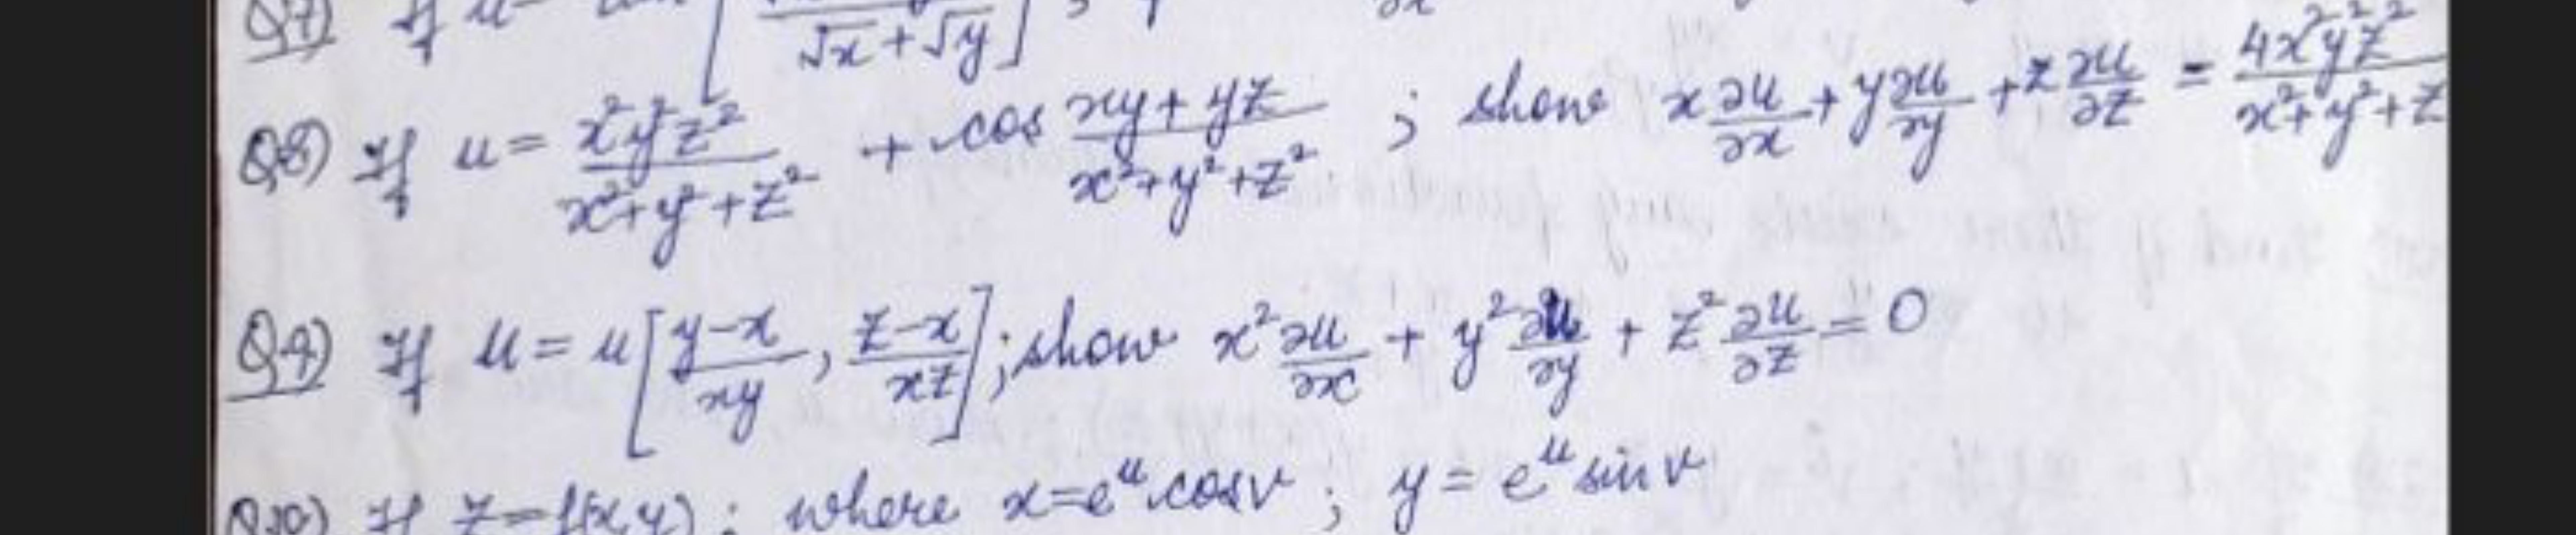 Q7) If u
√x+√y]
Q8) If u = x²y²z² / x²+y²+z² + cos xy+yz / x²+y²+z² ; show x ∂u/∂x + y ∂u/∂y + z ∂u/∂z = 4x²y²z² / x²+y²+z
Q9) If u = u[y-x / xy, z-x / xz]; show x² ∂u/∂x + y² ∂u/∂y + z² ∂u/∂z = 0
Q10) If z=f(x,y) ; where x=eᵘ cosv ; y = eᵘ sinv